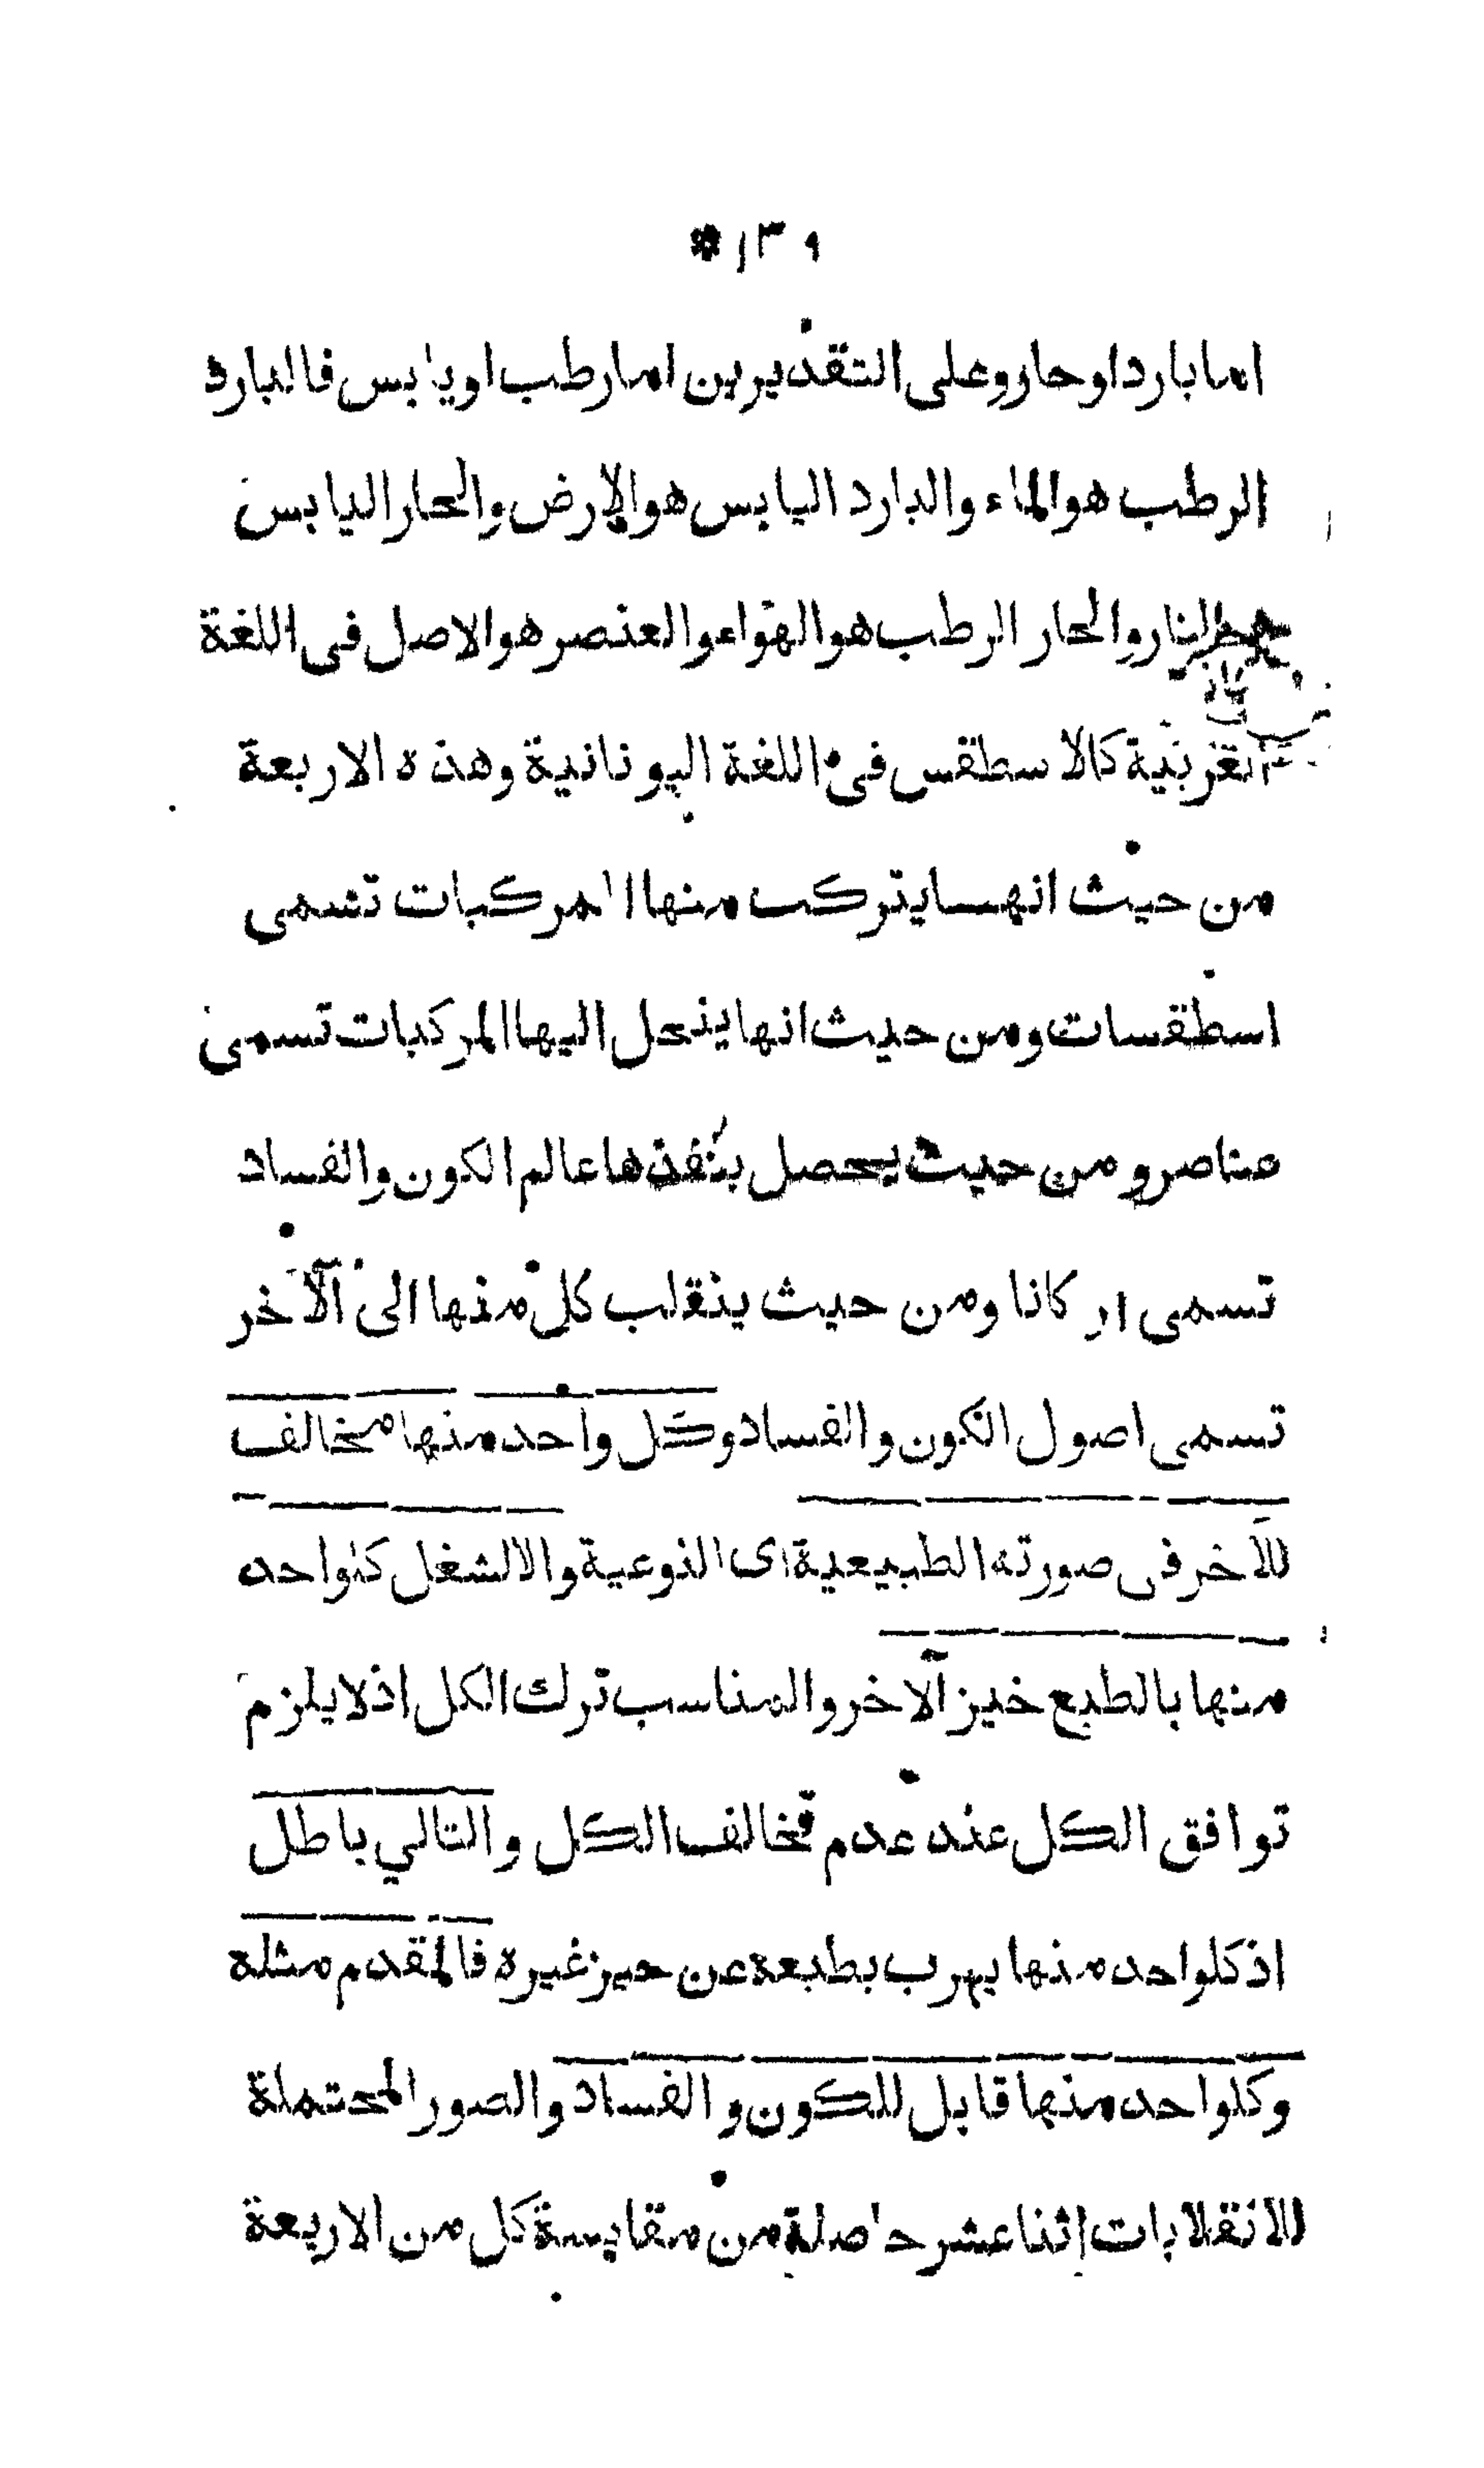 * ١٣٩
اما بارد او حار وعلى التقديرين اما رطب او يابس فالبارد
الرطب هو الماء والبارد اليابس هو الارض والحار اليابس
هو النار والحار الرطب هو الهواء والعنصر هو الاصل فى اللغة
العربية كالاسطقس فى اللغة اليونانية وهذه الاربعة
من حيث انها يتركب منها المركبات تسمى
اسطقسات ومن حيث انها ينحل اليها المركبات تسمى
عناصر ومن حيث يحصل بنضدها عالم الكون والفساد
تسمى اركانا ومن حيث ينقلب كل منها الى الآخر
تسمى اصول الكون والفساد وكل واحد منها مخالف
للآخر فى صورته الطبيعية اى النوعية والالشغل كلواحد
منها بالطبع حيز الآخر والمناسب ترك الكل اذ لا يلزم
توافق الكل عند عدم تخالف الكل والتالي باطل
اذ كلواحد منها يهرب بطبعه عن حيز غيره فالمقدم مثله
وكلواحد منها قابل للكون والفساد والصور المحتملة
للانقلابات اثنا عشر حاصلة من مقايسة كل من الاربعة